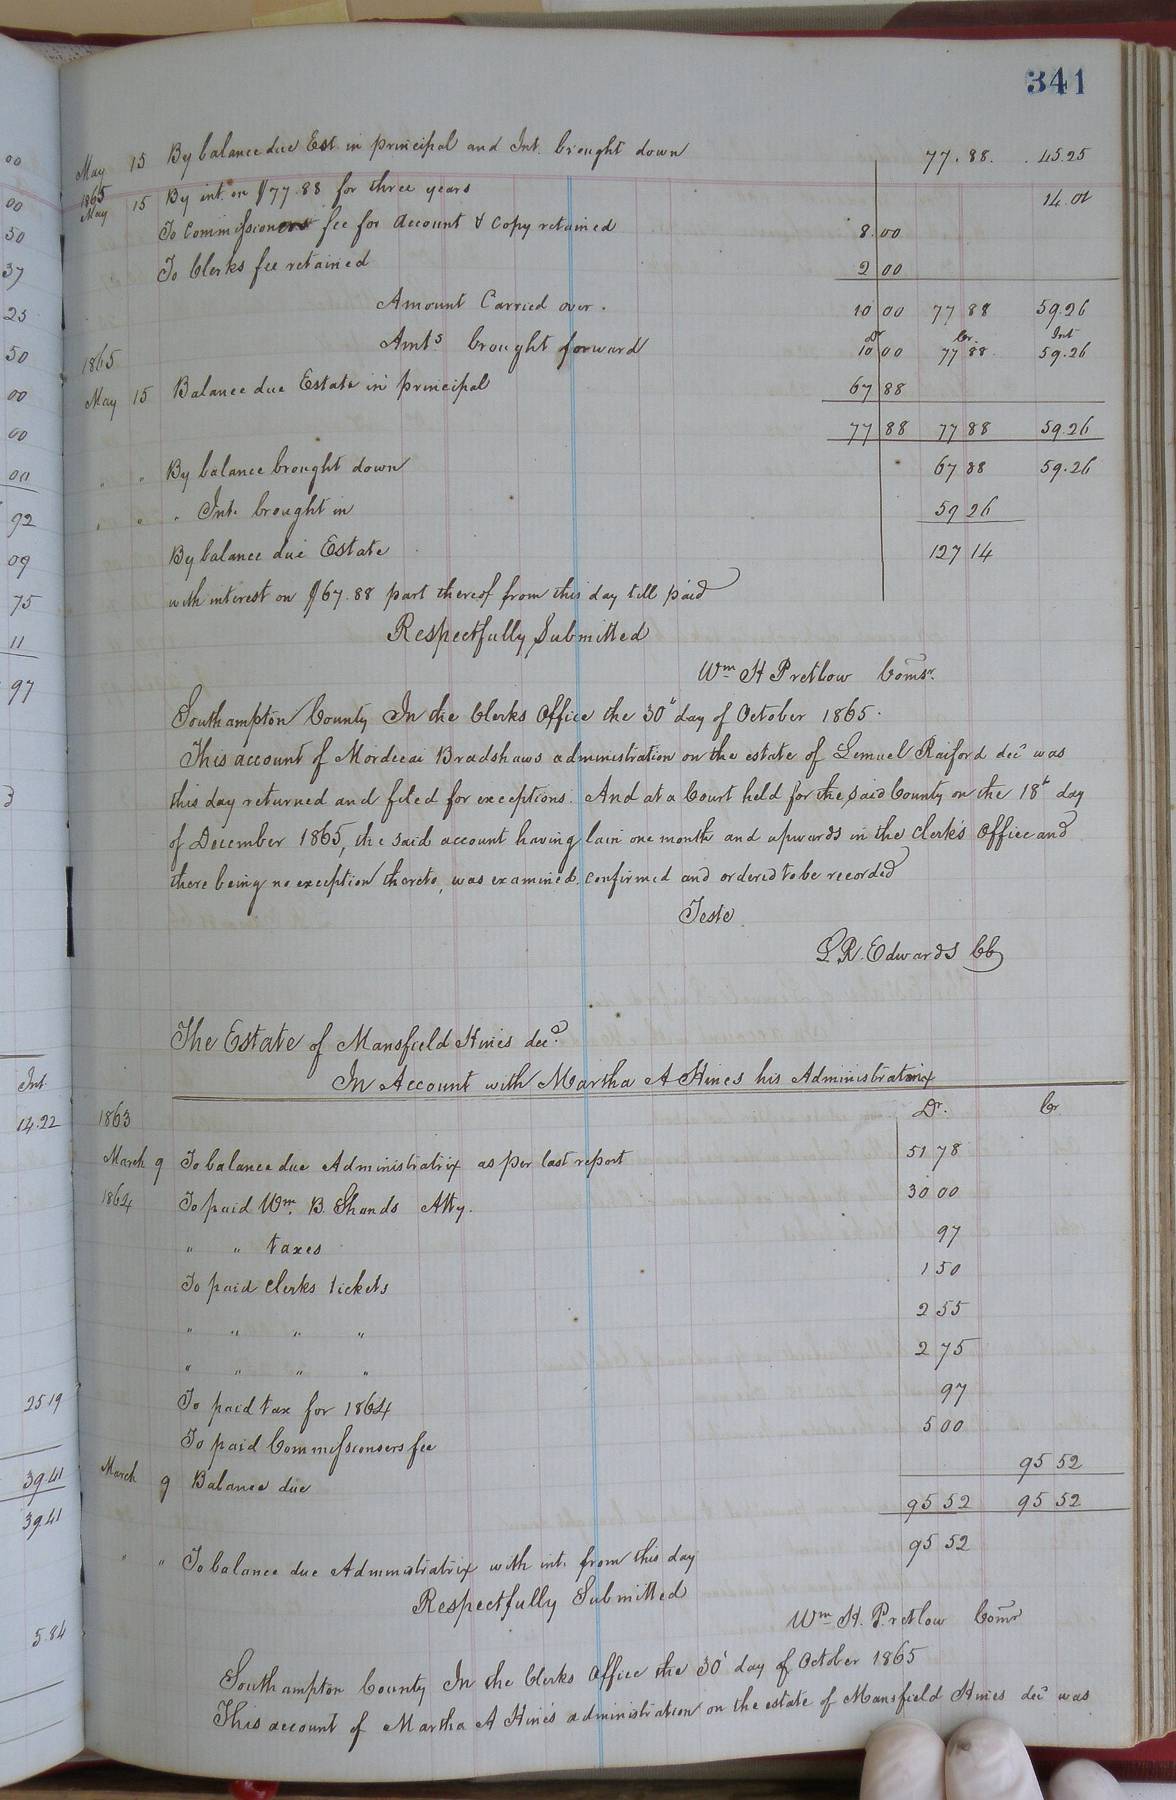 341
May 15 By balance due Est. in principal and Int. brought down 77.88. 45.25
1865
May 15 By int. on $77.88 for three years 14.01
To Commissioners fee for account & copy retained 8.00
To Clerks fee retained 2 00
Amount Carried over. 10 00 77 88 59.26
Dr Cr. Int
1865 Amts brought forward 10 00 77 88. 59.26
May 15 Balance due Estate in principal 67 88
77 88 77 88 59.26
" " By balance brought down 67 88 59.26
" " " Int. brought in 59 26
By balance due Estate 127 14
with interest on $67.88 part thereof from this day till paid
Respectfully Submitted
Wm H Pretlow Comsr.
Southampton County In the Clerks Office the 30th day of October 1865.
This account of Mordecai Bradshaws administration on the estate of Lemuel Raiford decd was
this day returned and filed for exceptions. And at a Court held for the said County on the 18th day
of December 1865, the said account having lain one month and upwards in the clerk's office and
there being no exception thereto, was examined, confirmed and ordered to be recorded
Teste
L. R. Edwards CC
The Estate of Mansfield Hines decd.
In Account with Martha A Hines his Administratrix
1863 Dr. Cr
March 9 To balance due Administratrix as per last report 51 78
1864 To paid Wm. B. Shands Atty. 30 00
" " taxes 97
To paid clerks tickets 1 50
" " " " 2 55
" " " " 2 75
To paid tax for 1864 97
To paid Commissioners fee 5 00
March 9 Balance due 95 52
95 52 95 52
" " To balance due Administratrix with int. from this day 95 52
Respectfully Submitted
Wm H. Pretlow Comr
Southampton County In the Clerks Office the 30' day of October 1865
This account of Martha A Hines administration on the estate of Mansfield Hines decd was
00
00
50
37
25
50
00
00
00
92
09
75
11
97
3
Int
14.22
25 19
39 41
39 41
5.84